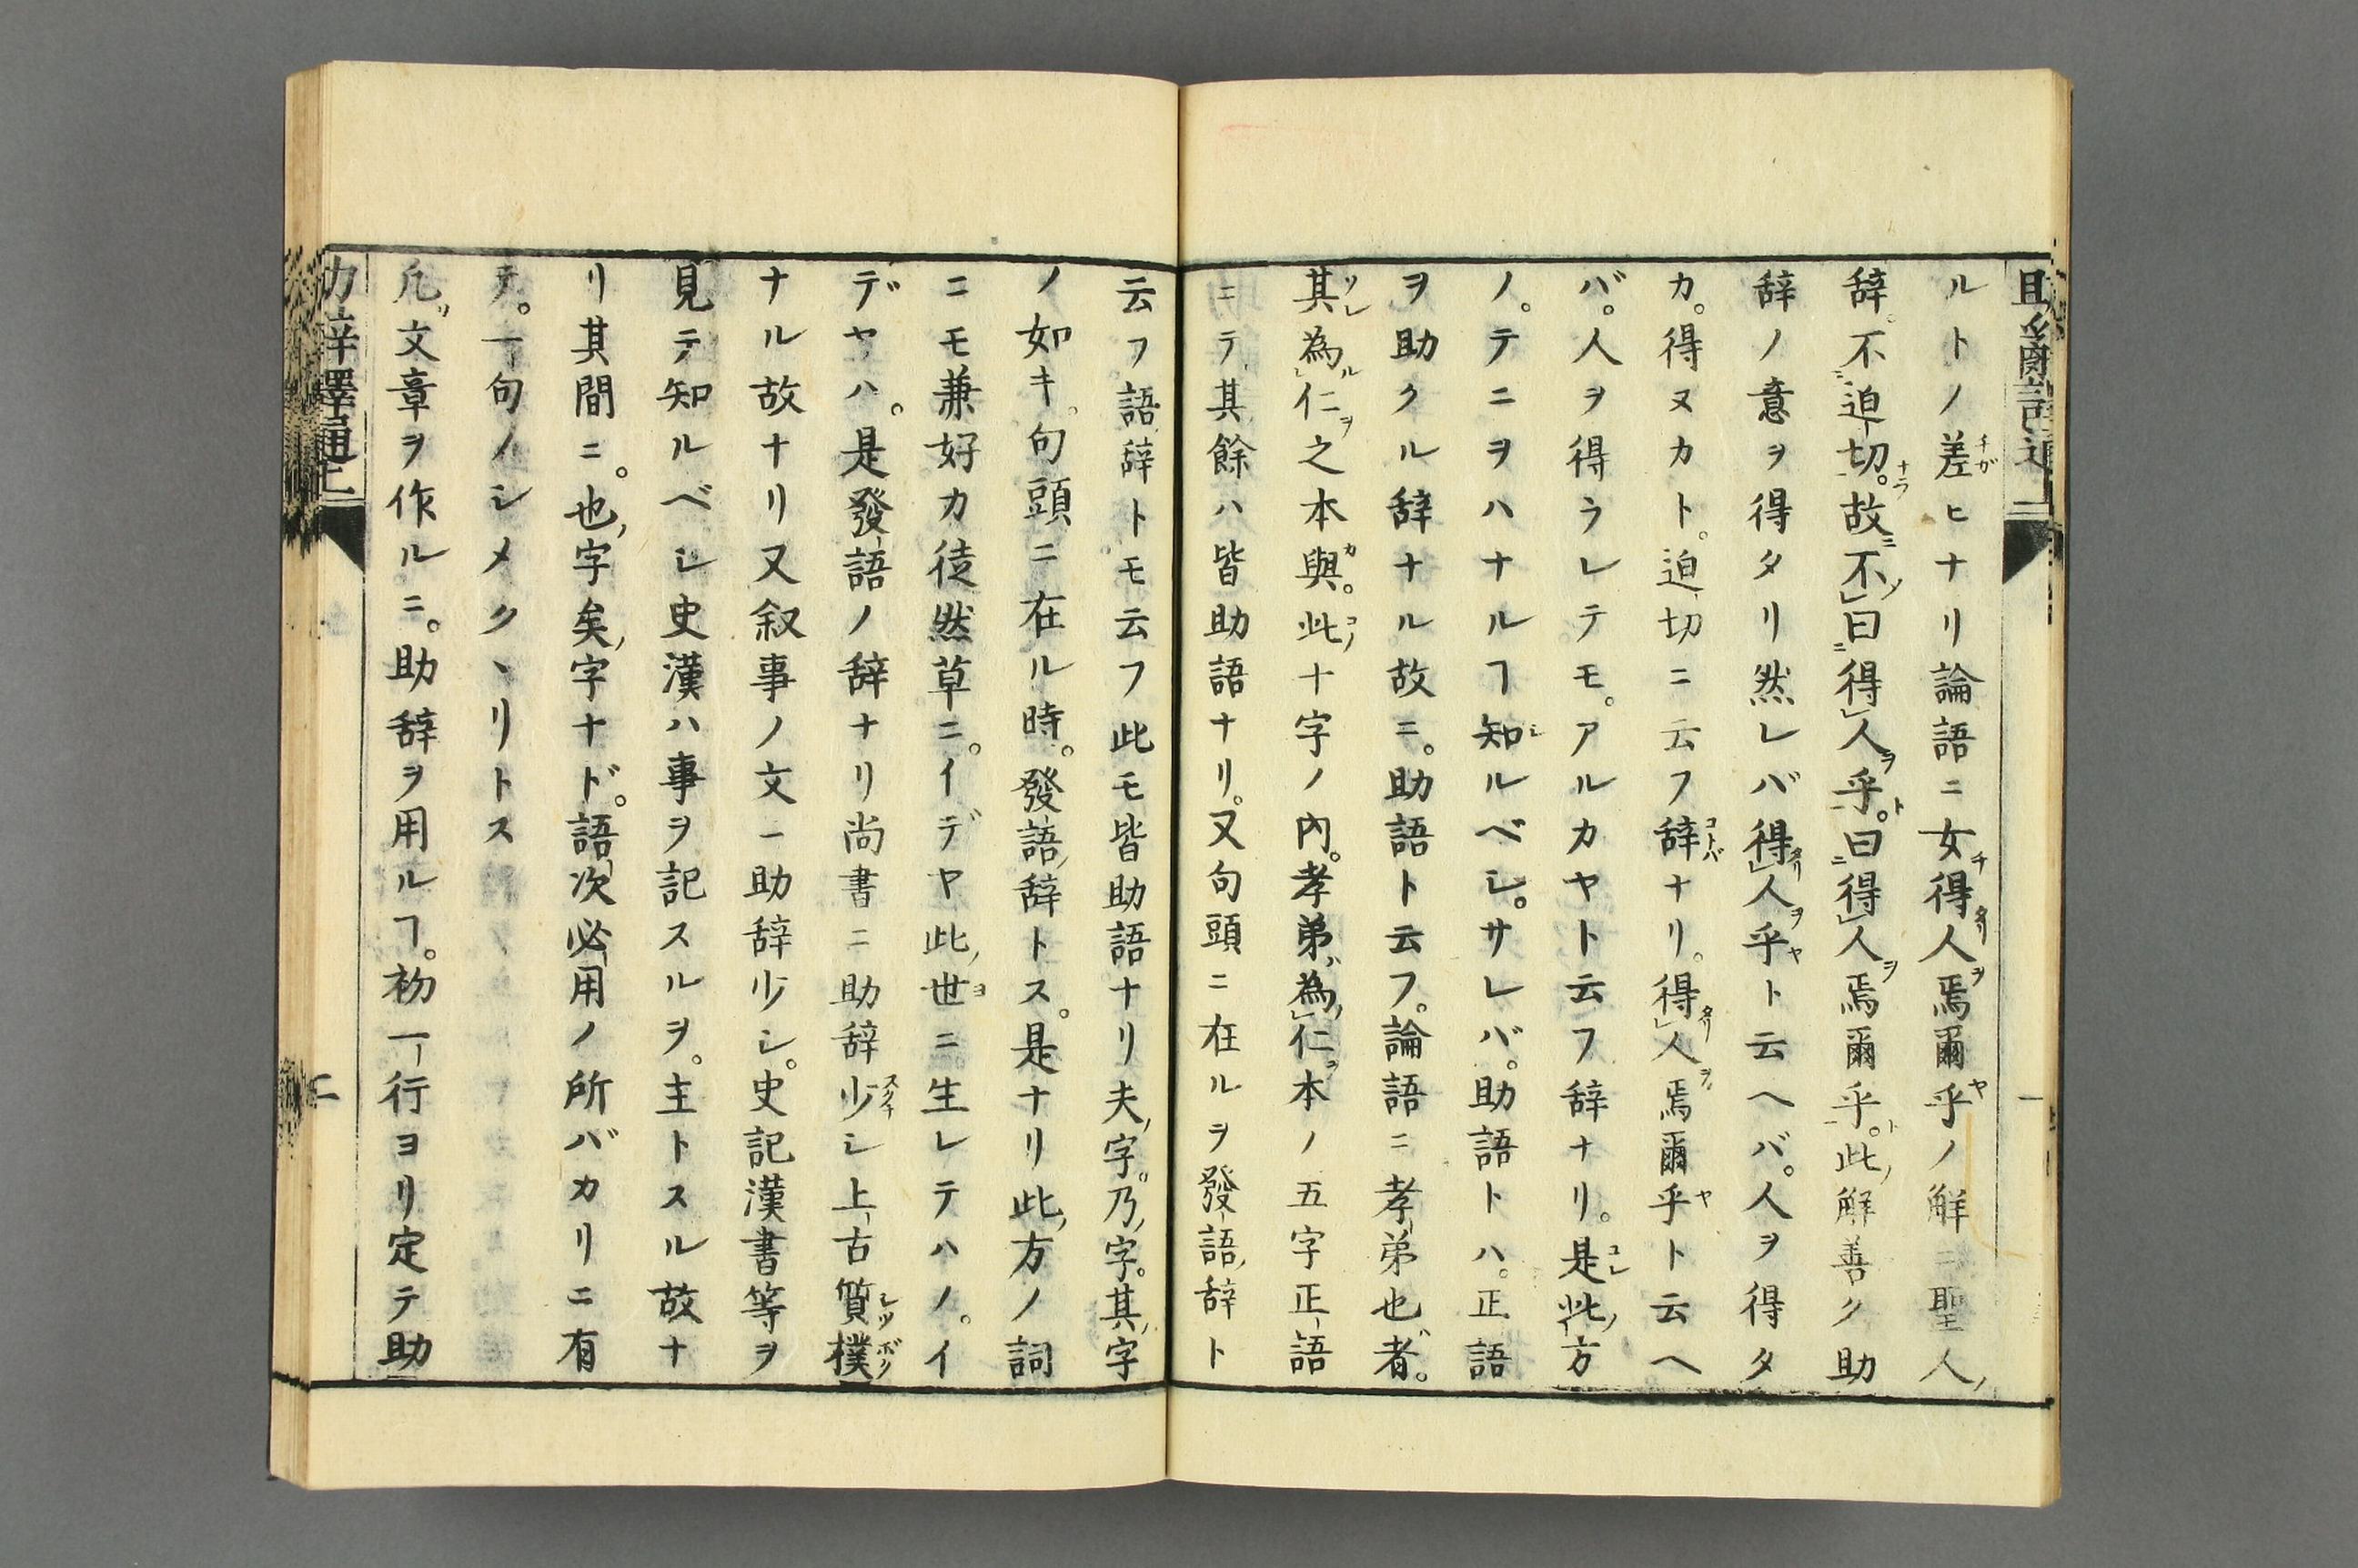 ルトノ差ヒナリ論語ニ女得人焉爾乎ノ解ニ聖人
辞。不迫切。故不曰得人乎。曰得人焉爾乎。此解善ク助
辞ノ意ヲ得タリ然レバ得人乎ト云ヘバ。人ヲ得タ
カ。得ヌカト。迫切ニ云フ辞ナリ。得人焉爾乎ト云ヘ
バ。人ヲ得ラレテモ。アルカヤト云フ辞ナリ。是此方
ノ。テニヲハナルヿ知ルベシ。サレバ。助語トハ。正語
ヲ助クル辞ナル故ニ。助語ト云フ。論語ニ孝弟也者。
其為仁之本與。此十字ノ内。孝弟為仁。本ノ五字正語
ニテ其餘ハ皆助語ナリ。又句頭ニ在ルヲ發語辞ト
云フ語辞トモ云フ此モ皆助語ナリ夫字。乃字。其字
ノ如キ。句頭ニ在ル時。發語辞トス。是ナリ此方ノ詞
ニモ兼好カ徒然草ニ。イデヤ此世ニ生レテハノ。イ
デヤハ。是發語ノ辞ナリ尚書ニ助辞少シ上古質樸
ナル故ナリ又叙事ノ文ー助辞少シ。史記漢書等ヲ
見テ知ルベシ史漢ハ事ヲ記スルヲ。主トスル故ナ
リ其間ニ。也字矣字ナド。語次必用ノ所バカリニ有
テ。一句ノシメクヽリトス
凡文章ヲ作ルニ。助辞ヲ用ルヿ。初一行ヨリ定テ助
二